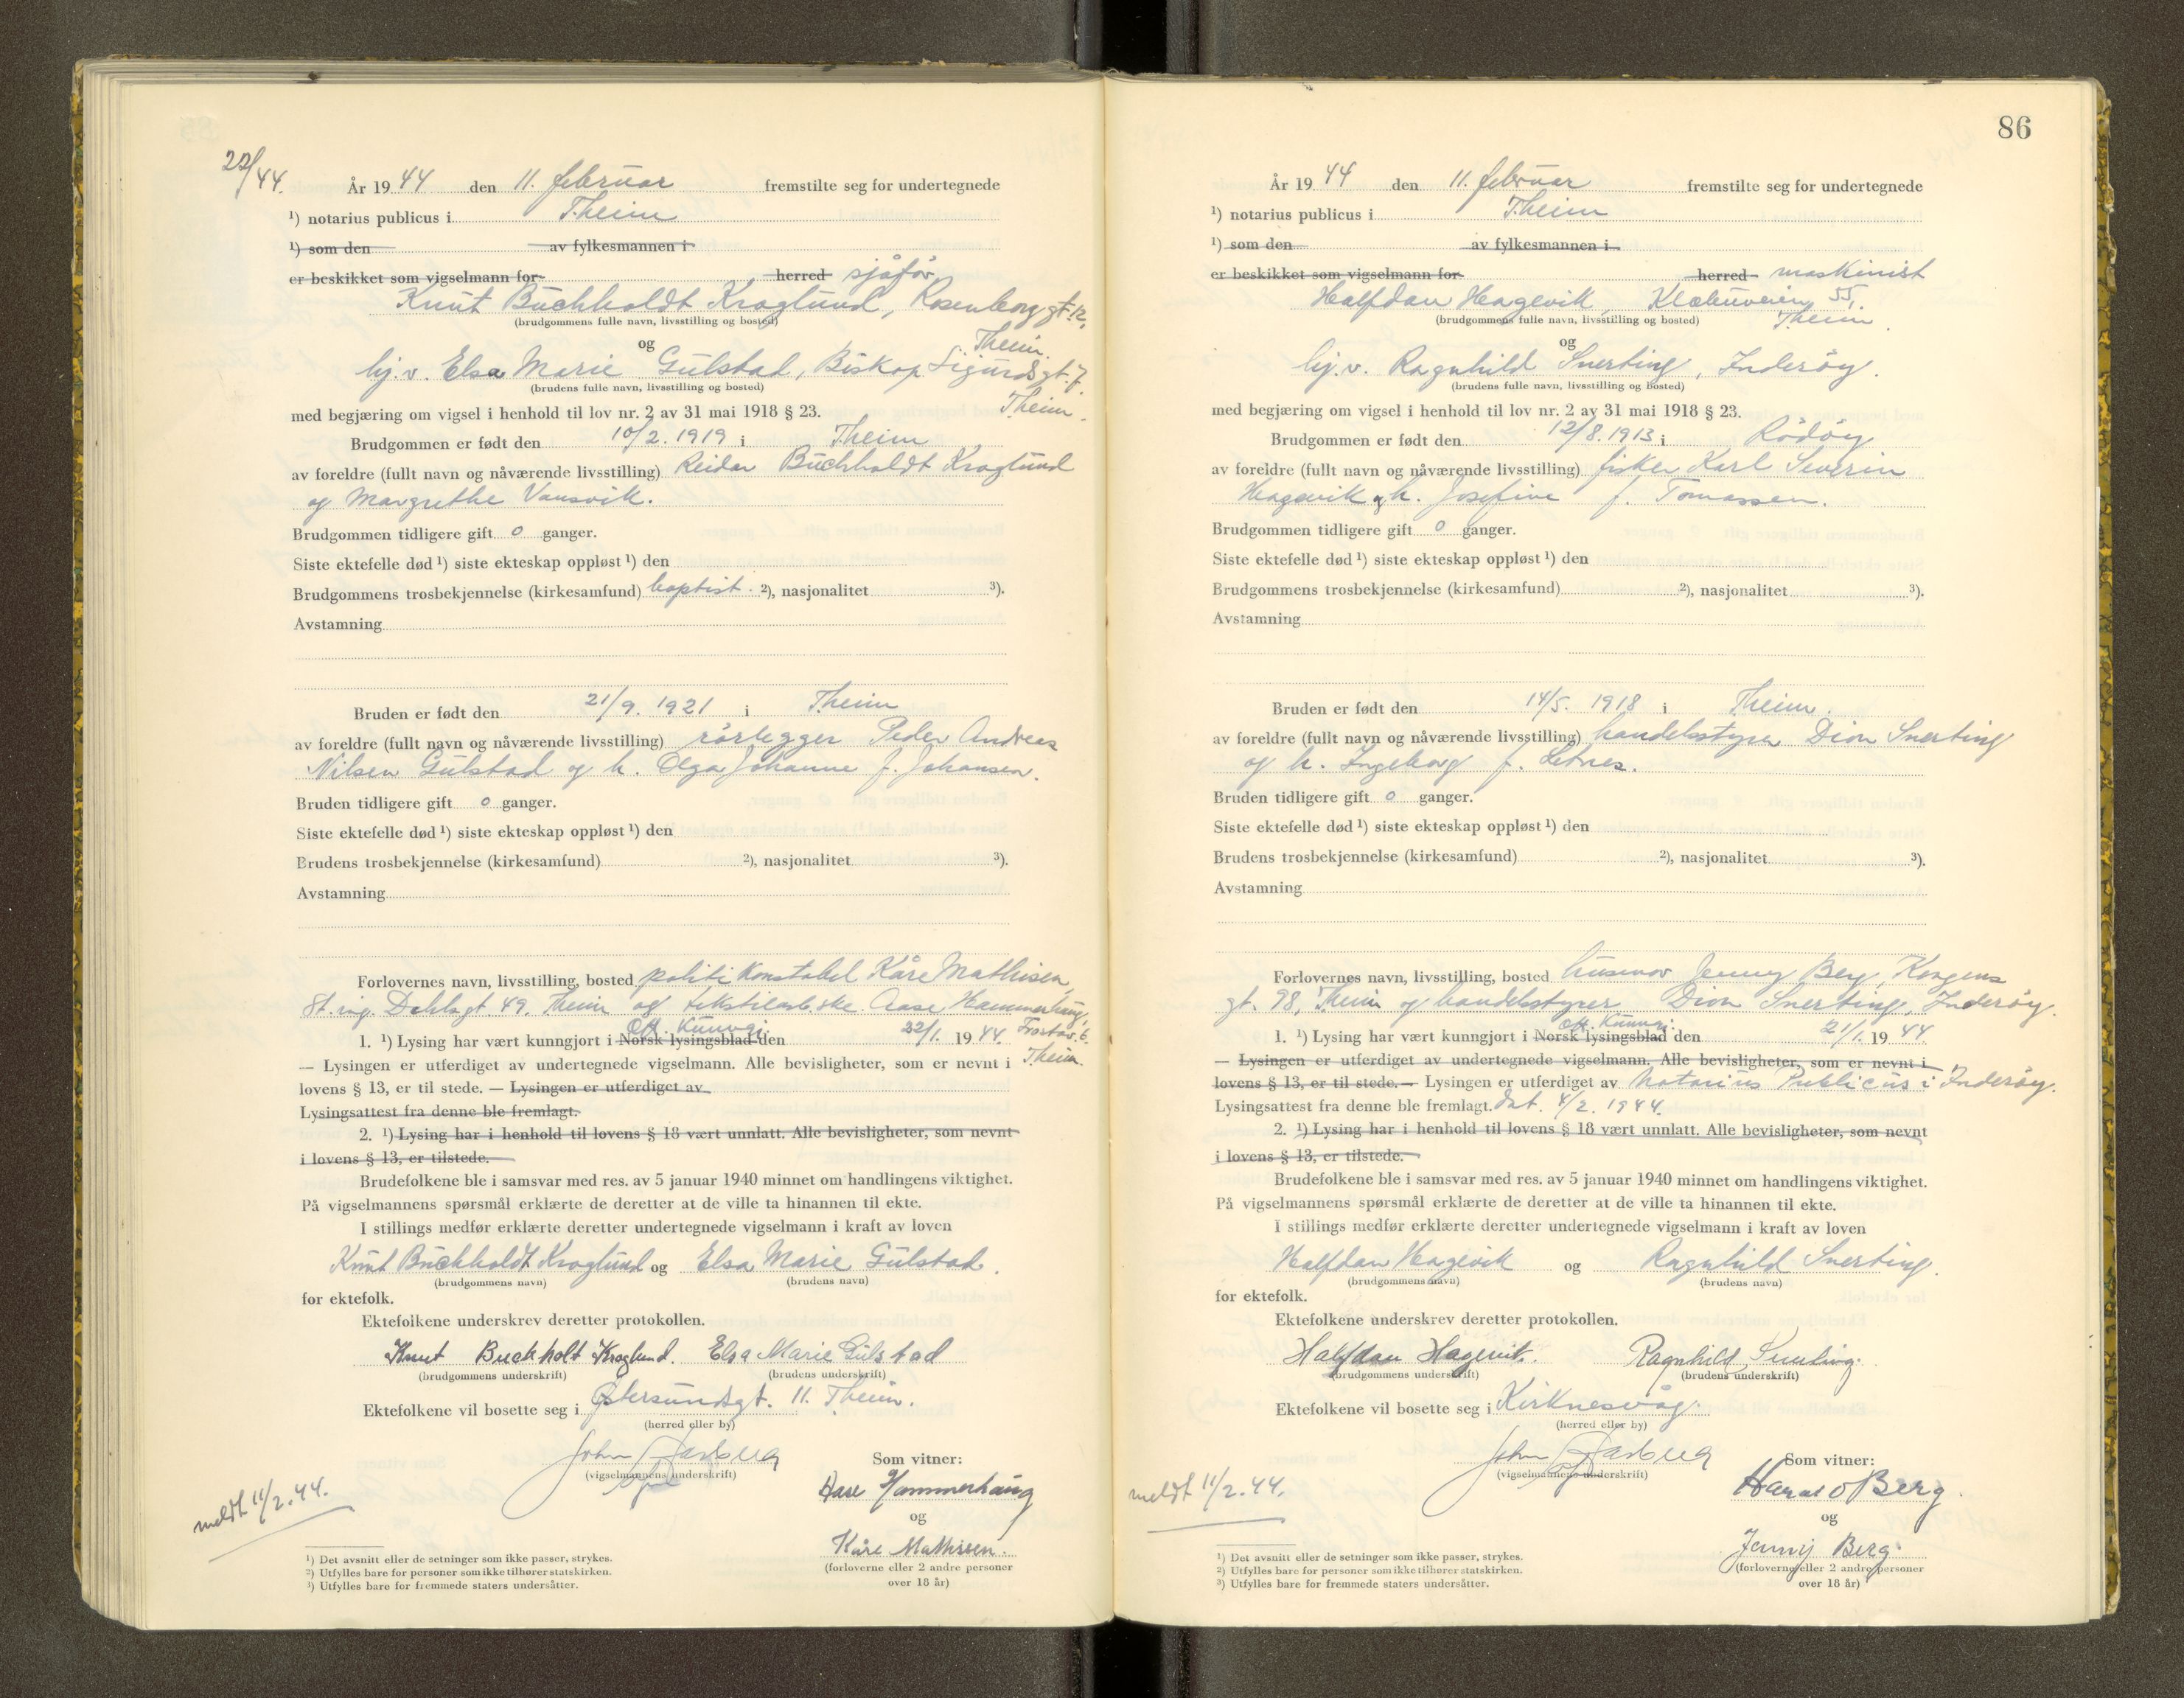 22/44.
År 1944 den 11. februar fremstilte seg for undertegnede
¹) notarius publicus i Theim
¹) som den av fylkesmannen i
er beskikket som vigselmann for herred sjåfør
Knut Buchholdt Kroglund, Rosenborg gt. 12,
(brudgommens fulle navn, livsstilling og bosted)
Theim.
og
hj.v. Elsa Marie Gulstad, Biskop Sigurdsgt. 7.
(brudens fulle navn, livsstilling og bosted)
Theim.
med begjæring om vigsel i henhold til lov nr. 2 av 31 mai 1918 § 23.
Brudgommen er født den 10/2. 1919 i Theim
av foreldre (fullt navn og nåværende livsstilling) Reidar Buchholdt Kroglund
og Margrethe Vansvik.
Brudgommen tidligere gift 0 ganger.
Siste ektefelle død ¹) siste ekteskap oppløst ¹) den
Brudgommens trosbekjennelse (kirkesamfund) baptist. ²), nasjonalitet ³).
Avstamning
Bruden er født den 21/9. 1921 i Theim
av foreldre (fullt navn og nåværende livsstilling) rørlegger Peder Andreas
Nilsen Gulstad og h. Olga Johanne f. Johansen.
Bruden tidligere gift 0 ganger.
Siste ektefelle død ¹) siste ekteskap oppløst ¹) den
Brudens trosbekjennelse (kirkesamfund) ²), nasjonalitet ³).
Avstamning
Forlovernes navn, livsstilling, bosted politikonstabel Kåre Mathisen,
St. ing. Dahlsgt 49. Theim og Aase Hammerhaug,
Off. Kunngj.
1. ¹) Lysing har vært kunngjort i Norsk lysingsblad den 22/1. 1944. Frostav. 6.
— Lysingen er utferdiget av undertegnede vigselmann. Alle bevisligheter, som er nevnt i Theim.
lovens § 13, er til stede. — Lysingen er utferdiget av
Lysingsattest fra denne ble fremlagt.
2. ¹) Lysing har i henhold til lovens § 18 vært unnlatt. Alle bevisligheter, som nevnt
i lovens § 13, er tilstede.
Brudefolkene ble i samsvar med res. av 5 januar 1940 minnet om handlingens viktighet.
På vigselmannens spørsmål erklærte de deretter at de ville ta hinannen til ekte.
I stillings medfør erklærte deretter undertegnede vigselmann i kraft av loven
Knut Buchholdt Kroglund og Elsa Marie Gulstad.
(brudgommens navn) (brudens navn)
for ektefolk.
Ektefolkene underskrev deretter protokollen.
Knut Buckholt Kroglund. Elsa Marie Gulstad
(brudgommens underskrift) (brudens underskrift)
Ektefolkene vil bosette seg i Østersundsgt. 11. Theim.
(herred eller by)
John Aasberg
(vigselmannens underskrift)
Som vitner:
Aase Hammerhaug
og
Kåre Mathisen.
(forloverne eller 2 andre personer
over 18 år)
meldt 11/2. 44.
¹) Det avsnitt eller de setninger som ikke passer, strykes.
²) Utfylles bare for personer som ikke tilhører statskirken.
³) Utfylles bare for fremmede staters undersåtter.
86
År 1944 den 11. februar fremstilte seg for undertegnede
¹) notarius publicus i Theim
¹) som den av fylkesmannen i
er beskikket som vigselmann for herred maskinist
Halfdan Hagevik, Klæbuveien 55,
(brudgommens fulle navn, livsstilling og bosted) Theim.
og
hj.v. Ragnhild Snerting, Inderøy.
(brudens fulle navn, livsstilling og bosted)
med begjæring om vigsel i henhold til lov nr. 2 av 31 mai 1918 § 23.
Brudgommen er født den 12/8. 1913 i Rødøy
av foreldre (fullt navn og nåværende livsstilling) fisker Karl Severin
Hagevik og h. Josefine f. Tomassen.
Brudgommen tidligere gift 0 ganger.
Siste ektefelle død ¹) siste ekteskap oppløst ¹) den
Brudgommens trosbekjennelse (kirkesamfund) ²), nasjonalitet ³).
Avstamning
Bruden er født den 14/5. 1918 i Theim.
av foreldre (fullt navn og nåværende livsstilling) handelsstyrer Dion Snerting
og h. Ingeborg f. Letnes.
Bruden tidligere gift 0 ganger.
Siste ektefelle død ¹) siste ekteskap oppløst ¹) den
Brudens trosbekjennelse (kirkesamfund) ²), nasjonalitet ³).
Avstamning
Forlovernes navn, livsstilling, bosted husmor Jenny Berg, Kongens
gt. 98, Theim og handelsstyrer Dion Snerting, Inderøy.
Off. Kunngj.
1. ¹) Lysing har vært kunngjort i Norsk lysingsblad den 21/1. 1944.
— Lysingen er utferdiget av undertegnede vigselmann. Alle bevisligheter, som er nevnt i
lovens § 13, er til stede. — Lysingen er utferdiget av Notarius Publicus i Inderøy.
Lysingsattest fra denne ble fremlagt. dat. 4/2. 1944.
2. ¹) Lysing har i henhold til lovens § 18 vært unnlatt. Alle bevisligheter, som nevnt
i lovens § 13, er tilstede.
Brudefolkene ble i samsvar med res. av 5 januar 1940 minnet om handlingens viktighet.
På vigselmannens spørsmål erklærte de deretter at de ville ta hinannen til ekte.
I stillings medfør erklærte deretter undertegnede vigselmann i kraft av loven
Halfdan Hagevik og Ragnhild Snerting.
(brudgommens navn) (brudens navn)
for ektefolk.
Ektefolkene underskrev deretter protokollen.
Halfdan Hagevik. Ragnhild Snerting.
(brudgommens underskrift) (brudens underskrift)
Ektefolkene vil bosette seg i Kirknesvåg.
(herred eller by)
John Aasberg
(vigselmannens underskrift)
Som vitner:
Harald Berg.
og
Jenny Berg.
(forloverne eller 2 andre personer
over 18 år)
meldt 11/2. 44.
¹) Det avsnitt eller de setninger som ikke passer, strykes.
²) Utfylles bare for personer som ikke tilhører statskirken.
³) Utfylles bare for fremmede staters undersåtter.